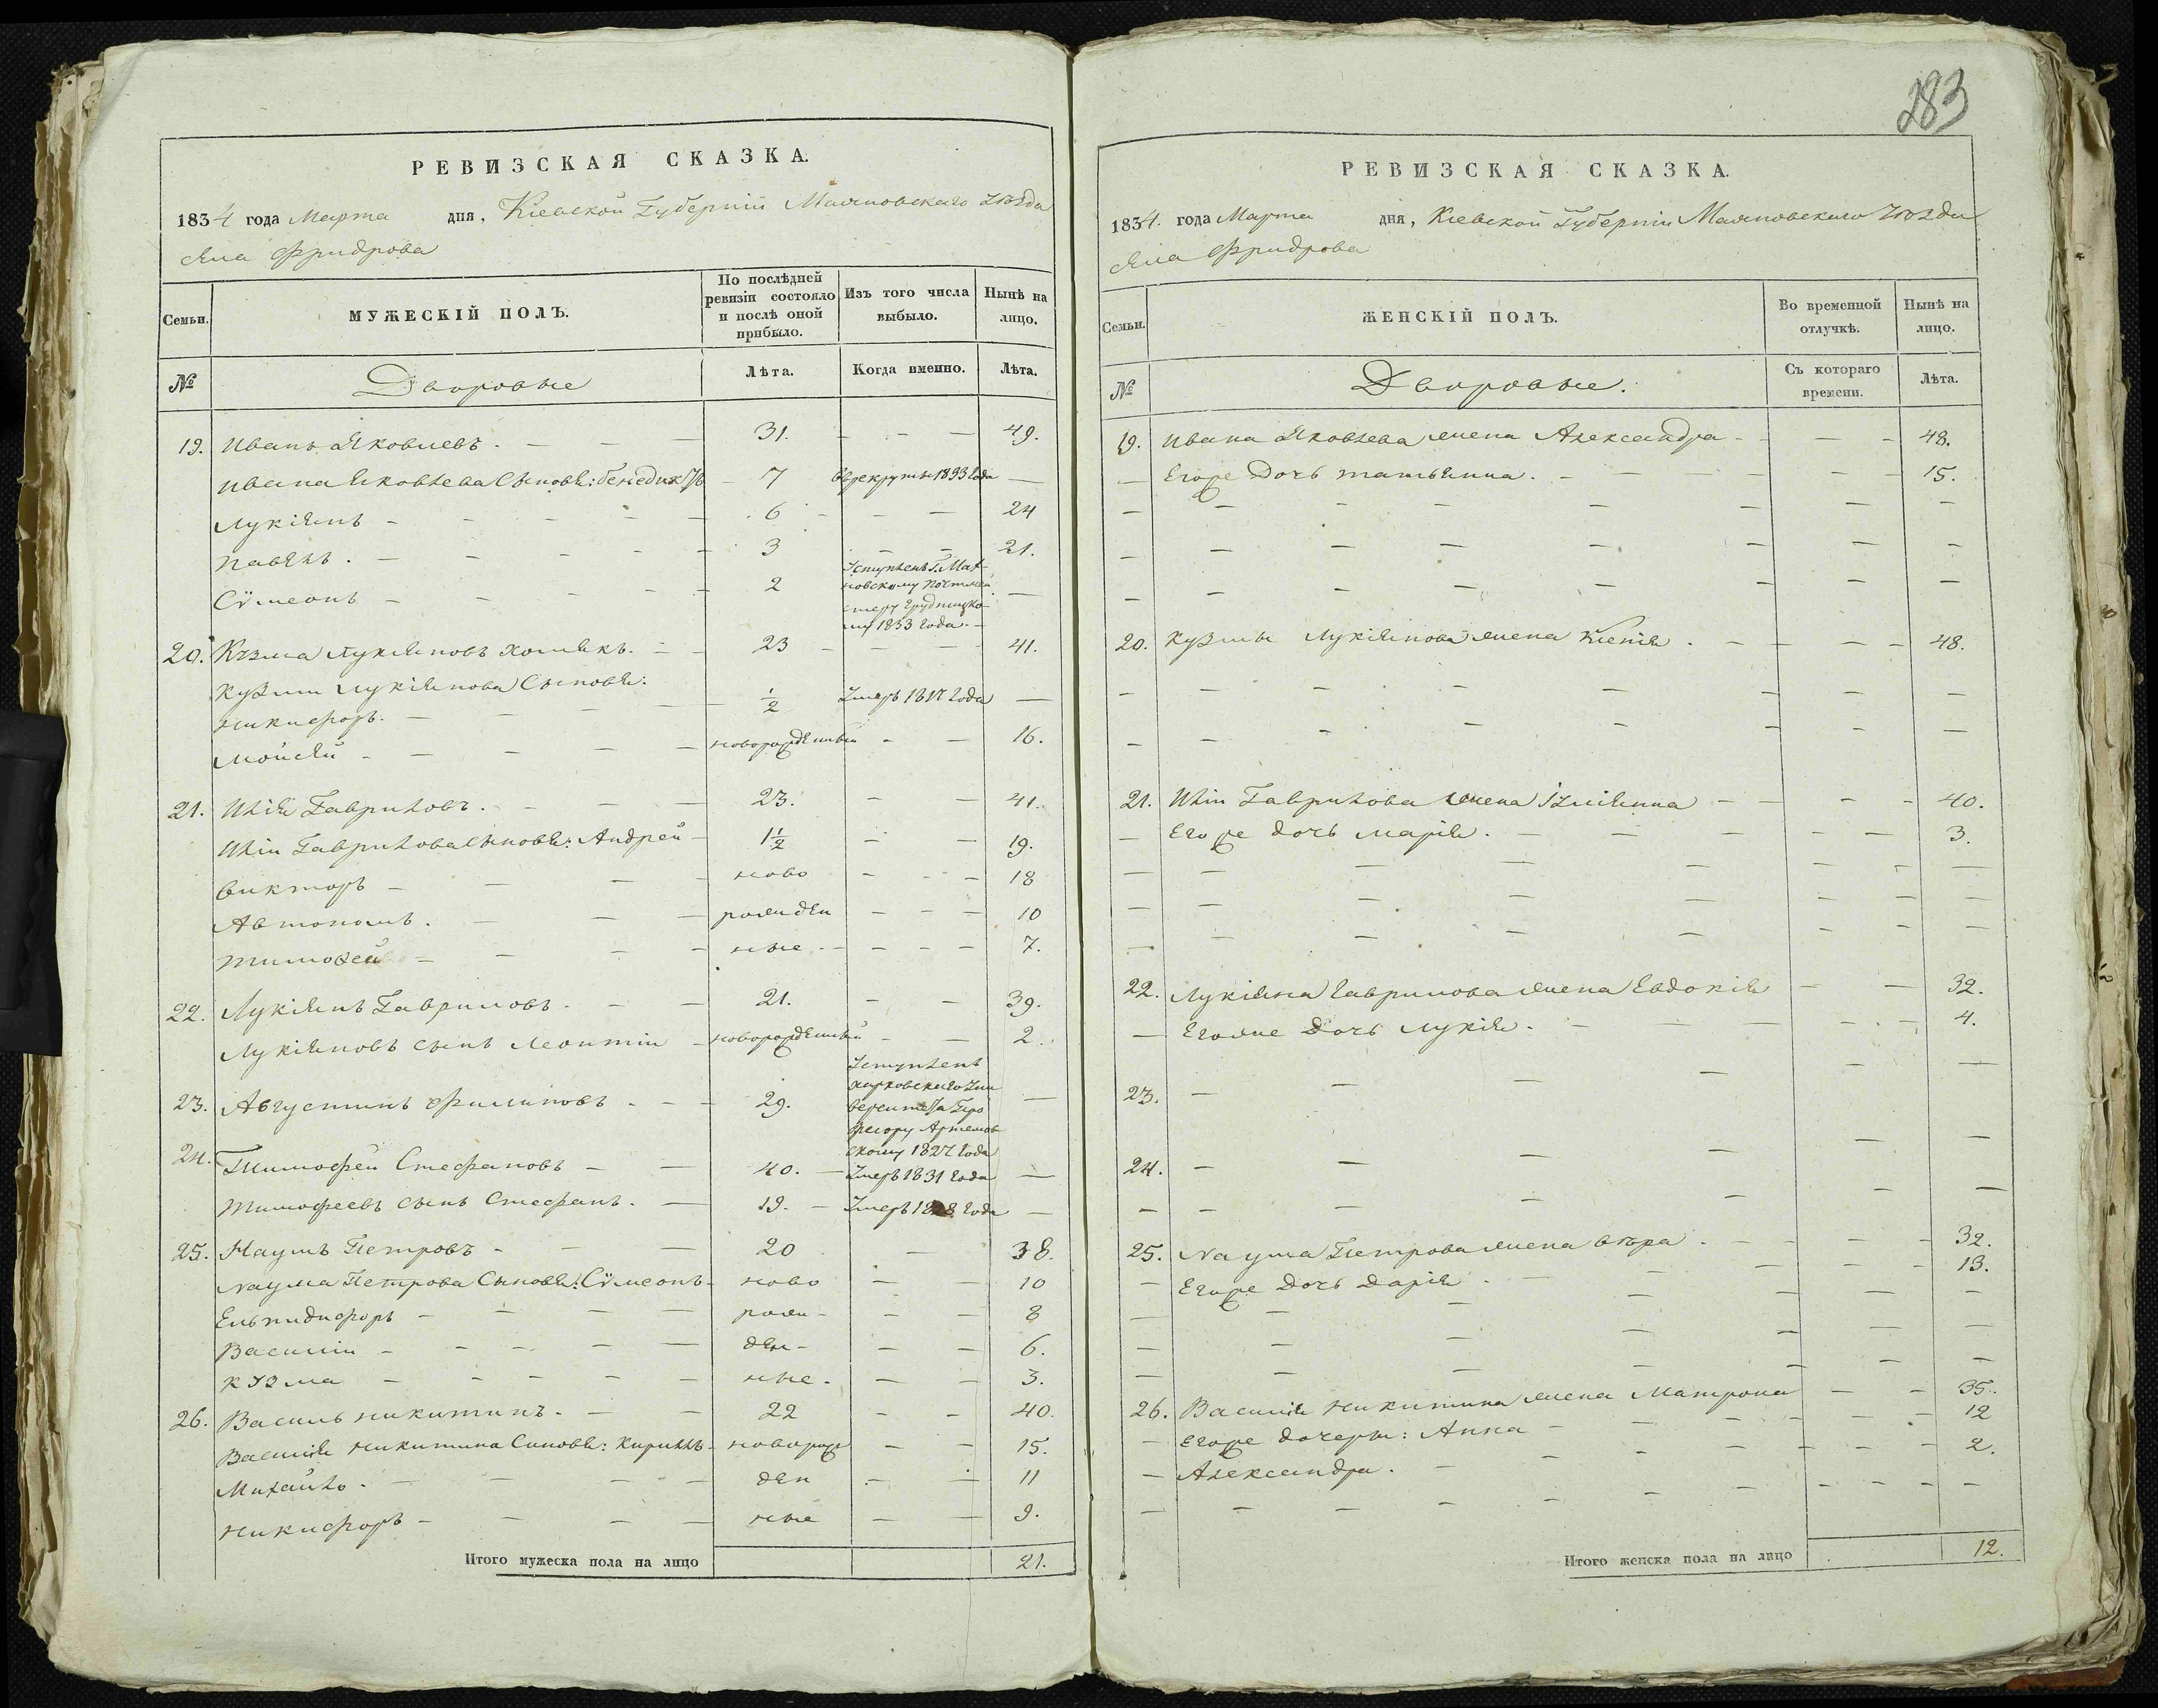 283
РЕВИЗСКАЯ СКАЗКА.
1834 года Марта дня, Кіевской Губерніи Махновскаго уѣзда
села Фридрова
Семьи.
МУЖЕСКІЙ ПОЛЪ.
По послѣдней ревизіи состояло и послѣ оной прибыло.
Изъ того числа выбыло.
Нынѣ на лицо.
№
Дворовые
Лѣта.
Когда именно.
Лѣта.
19. Иванъ Яковлевъ. 31. 49.
Ивана Яковлева Сыновья: Бенедиктъ 7 въ рекруты 1833 года
Лукіянъ 6 24
Павелъ. 3 21.
Сѵмеонъ 2 Уступленъ Г. Мах-
новскому почтмей
стеру Грудницко-
му 1833 года.
20. Кузма Лукіяновъ Хомякъ. 23 41.
Кузмы Лукіянова Сыновья:
Никифоръ. 1/2 Умеръ 1817 года
Мойсей новорожденный 16.
21. Илія Гавриловъ. 23. 41.
Иліи Гаврилова Сыновья: Андрей 1 1/2 19.
Викторъ ново 18
Автономъ. рожден 10
Тимоѳей ные 7.
22. Лукіянъ Гавриловъ. 21. 39.
Лукіяновъ сынъ Леонтій новорожденный 2.
23. Августинъ Филиповъ 29. Уступленъ
харковскаго Уни
верситета Про
фесору Артемов
скому 1827 года
24. Тимофей Стефановъ 40. Умеръ 1831 года
Тимофеевъ сынъ Стефанъ. 19. Умеръ 1828 года
25. Наумъ Петровъ 20 38.
Наума Петрова Сыновья: Сѵмеонъ ново 10
Ельпидифоръ рож- 8
Василій ден- 6.
Кузма ные. 3.
26. Василь Никитинъ. 22 40.
Василія Никитина Синовья: Кирилъ новорож 15.
Михайло. ден 11
Никифоръ ные 9.
Итого мужеска пола на лицо 21.
РЕВИЗСКАЯ СКАЗКА.
1834. года Марта дня, Кіевской Губерніи Махновскаго уѣзда
села Фридрова
Семьи.
ЖЕНСКІЙ ПОЛЪ.
Во временной отлучкѣ.
Нынѣ на лицо.
№
Дворовые.
Съ котораго времени.
Лѣта.
19. Ивана Яковлева жена Александра 48.
Егоже Дочь татьянна. 15.
20. Кузмы Лукіянова жена Ксенія. 48.
21. Иліи Гаврилова жена Иуліянна 40.
Егоже дочь Марія. 3.
22. Лукіяна Гаврилова жена Евдокія 32.
Егоже Дочь Лукія. 4.
23.
24.
25. Наума Петрова жена вѣра. 32.
Егоже Дочь Дарія 13.
26. Василія Никитина жена Матрона 35.
Егоже дочери: Анна 12
Александра. 2.
Итого женска пола на лицо 12.